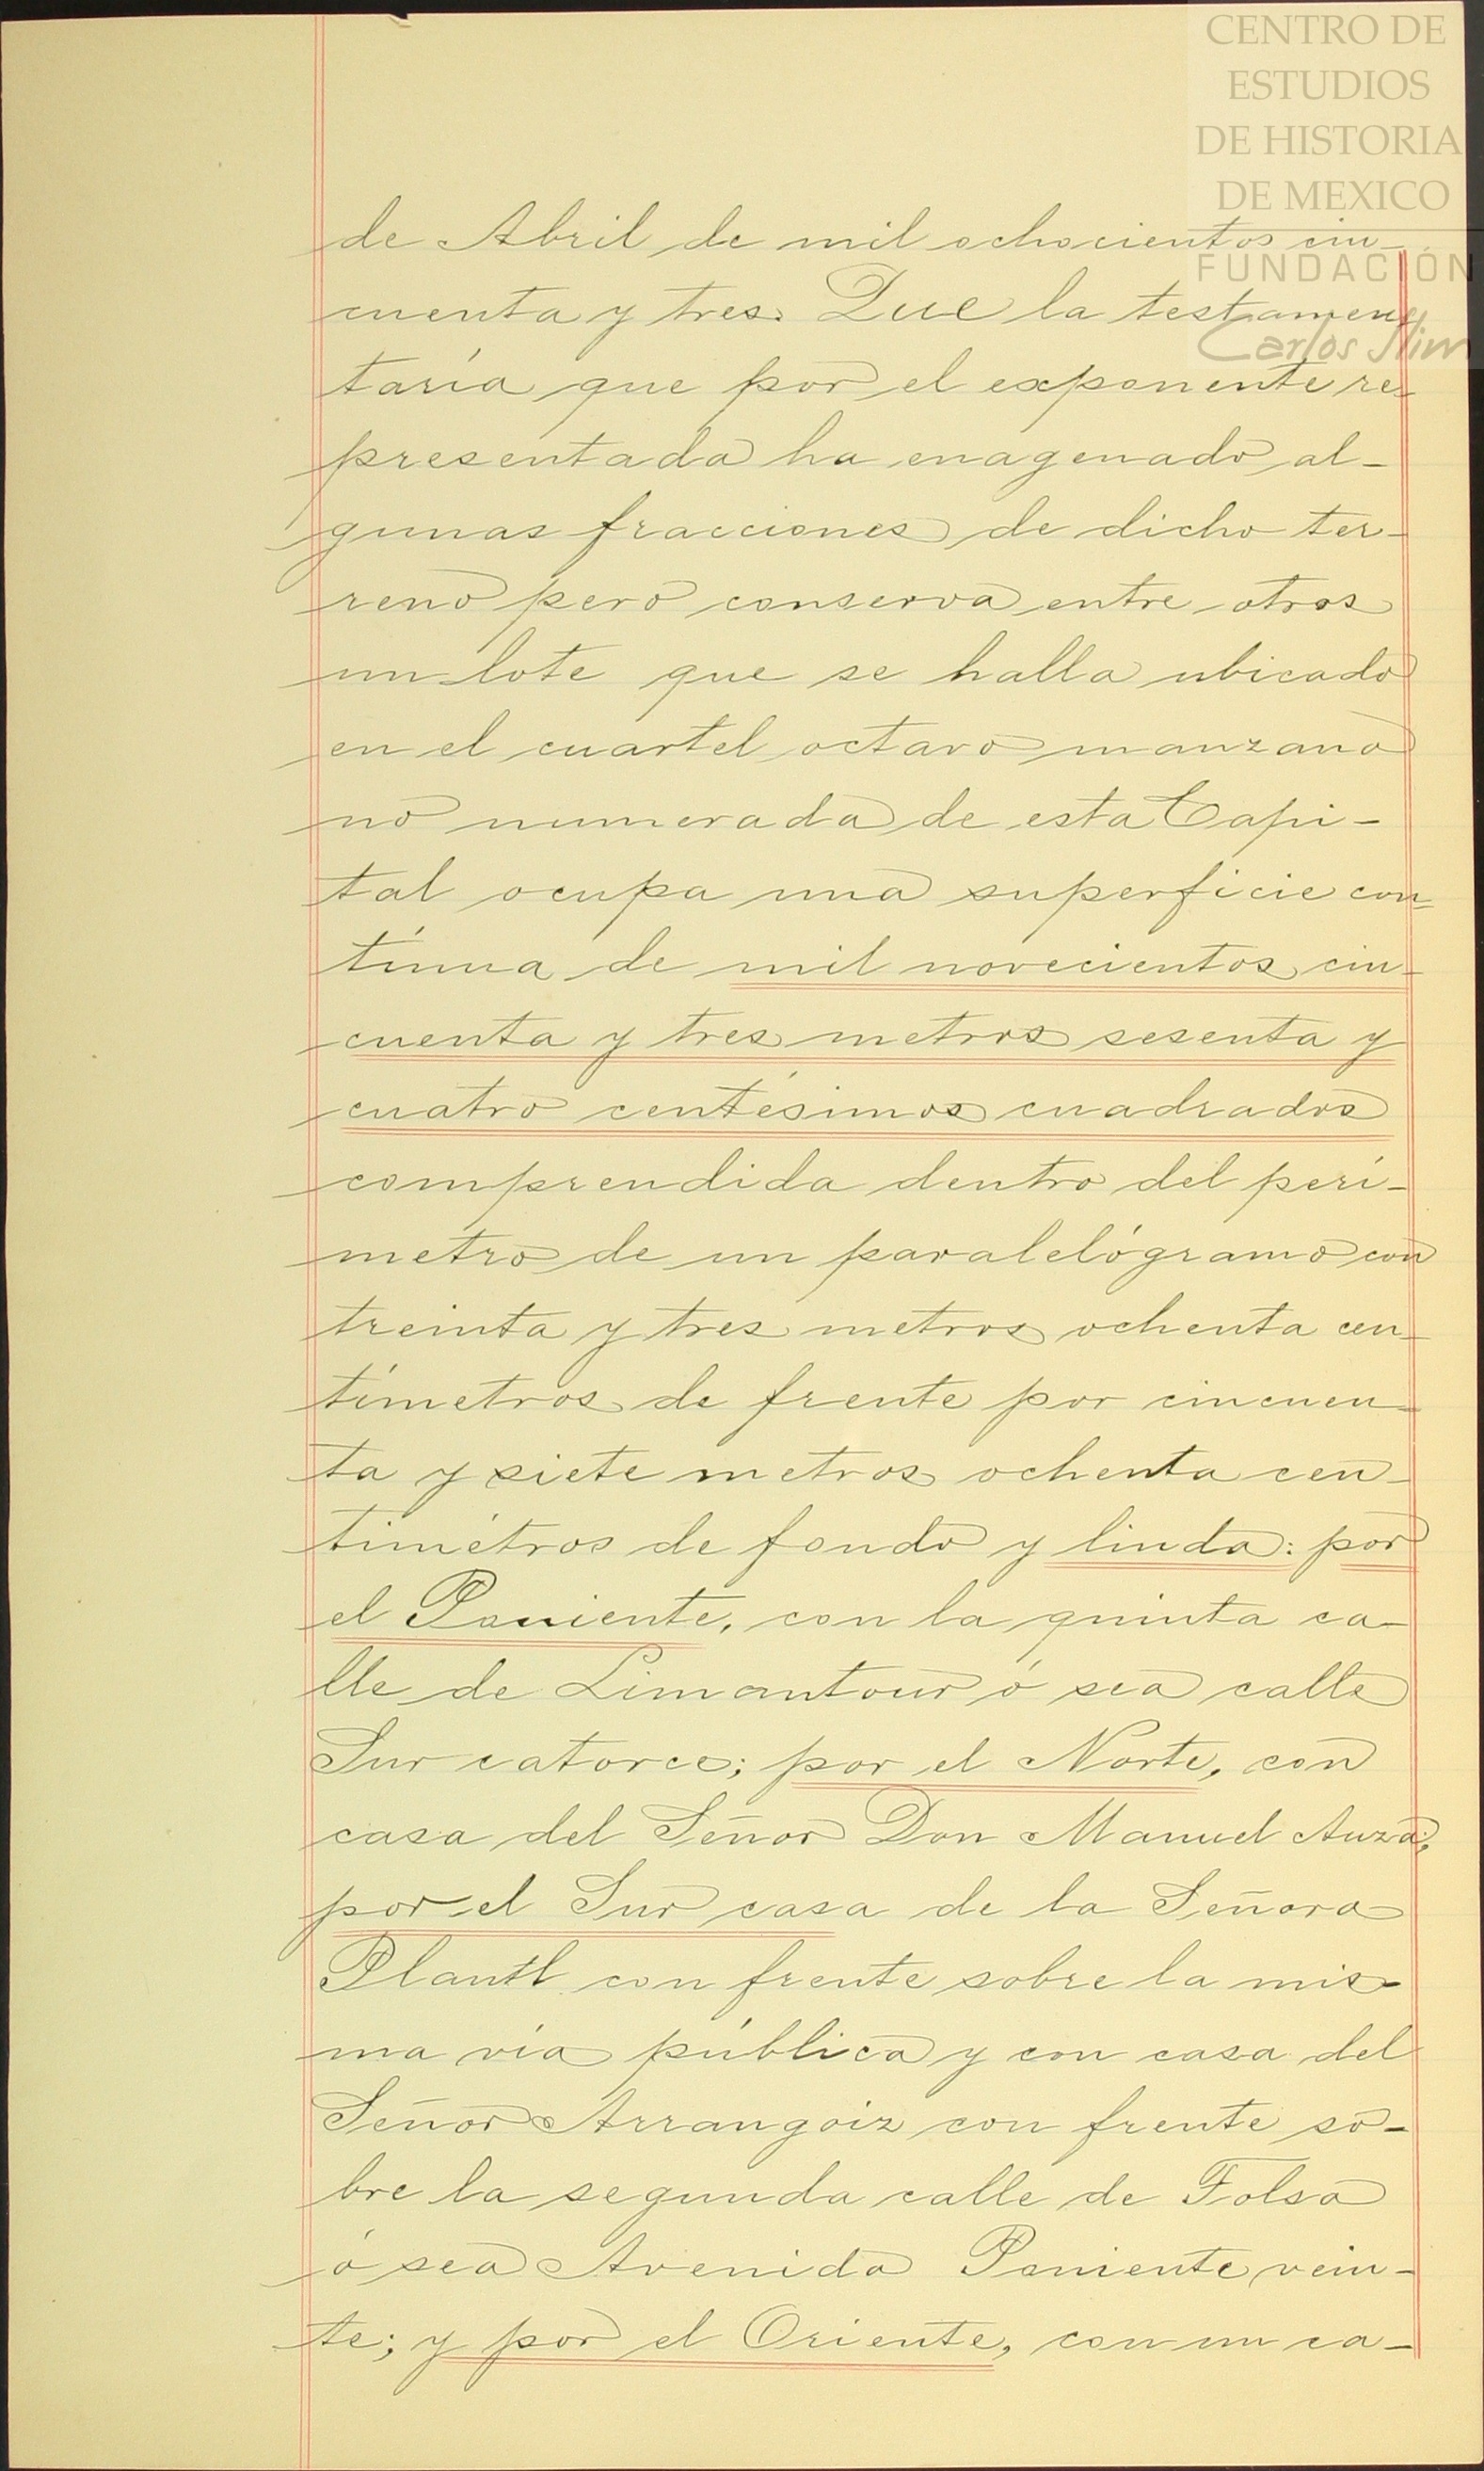 CENTRO DE
ESTUDIOS
DE HISTORIA
DE MEXICO
FUNDACIÓN
Carlos Slim
de Abril de mil ochocientos cin-
cuenta y tres. Que la testamen-
taría que por el exponente re-
presentada ha enagenado al-
gunas fracciones de dicho ter-
reno pero conserva entre otros
un lote que se halla ubicado
en el cuartel octavo manzana
no numerada de esta Capi-
tal ocupa una superficie con-
tínua de mil novecientos cin-
cuenta y tres metros sesenta y
cuatro centésimos cuadrados
comprendida dentro del perí-
metro de un paralelógramo con
treinta y tres metros ochenta cen-
tímetros de frente por cincuen-
ta y siete metros ochenta cen-
timétros de fondo y linda: por
el Poniente, con la quinta ca-
lle de Limantour ó sea calle
Sur catorce; por el Norte, con
casa del Señor Don Manuel Auza,
por el Sur casa de la Señora
Plantl con frente sobre la mis-
ma vía pública y con casa del
Señor Arrangoiz con frente so-
bre la segunda calle de Tolsa
ó sea Avenida Poniente vein-
te; y por el Oriente, con un ca-